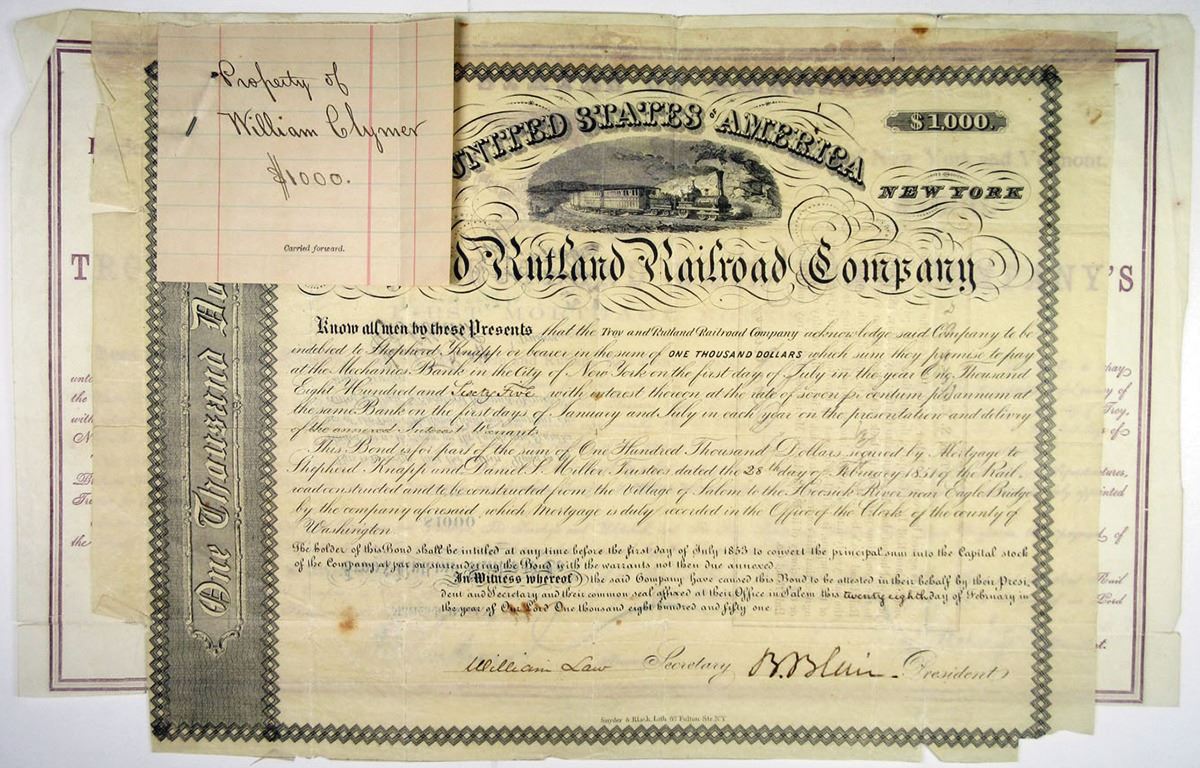 Property of
William Clymer
$1000.
Carried forward.
UNITED STATES AMERICA
$1,000.
NEW YORK
New York and Vermont.
d Rutland Railroad Company
T
NY'S
One Thousand Do
Know all men by these Presents that the Troy and Rutland Railroad Company acknowledge said Company to be
indebted to Shepherd Knapp or bearer in the sum of ONE THOUSAND DOLLARS which sum they promise to pay
at the Mechanics Bank in the City of New York on the first day of July in the year One Thousand
Eight Hundred and Sixty Five with interest thereon at the rate of seven pr. centum pr. annum at
the same Bank on the first days of January and July in each year on the presentation and delivery
of the annexed Interest Warrants
This Bond is for part of the sum of One Hundred Thousand Dollars secured by Mortgage to
Shepherd Knapp and Daniel S. Miller Trustees dated the 28th day of February 1851 of the Rail-
road constructed and to be constructed from the Village of Salem to the Hoosick River near Eagle Bridge
by the company foresaid, which Mortgage is duly recorded in the Office of the Clerk of the county of
Washington
The holder of this Bond shall be intitled at any time before the first day of July 1853 to convert the principal sum into the Capital stock
of the Company at par on surrendering the Bond with the warrants not then due annexed.
In Witness whereof the said Company have caused this Bond to be attested in their behalf by their Presi-
dent and Secretary and their common seal affixed at their Office in Salem this twenty eighth day of February in
the year of Our Lord One thousand eight hundred and fifty one
William Law Secretary B. Blair President
Snyder & Black, Lith. 87 Fulton Str. N.Y.